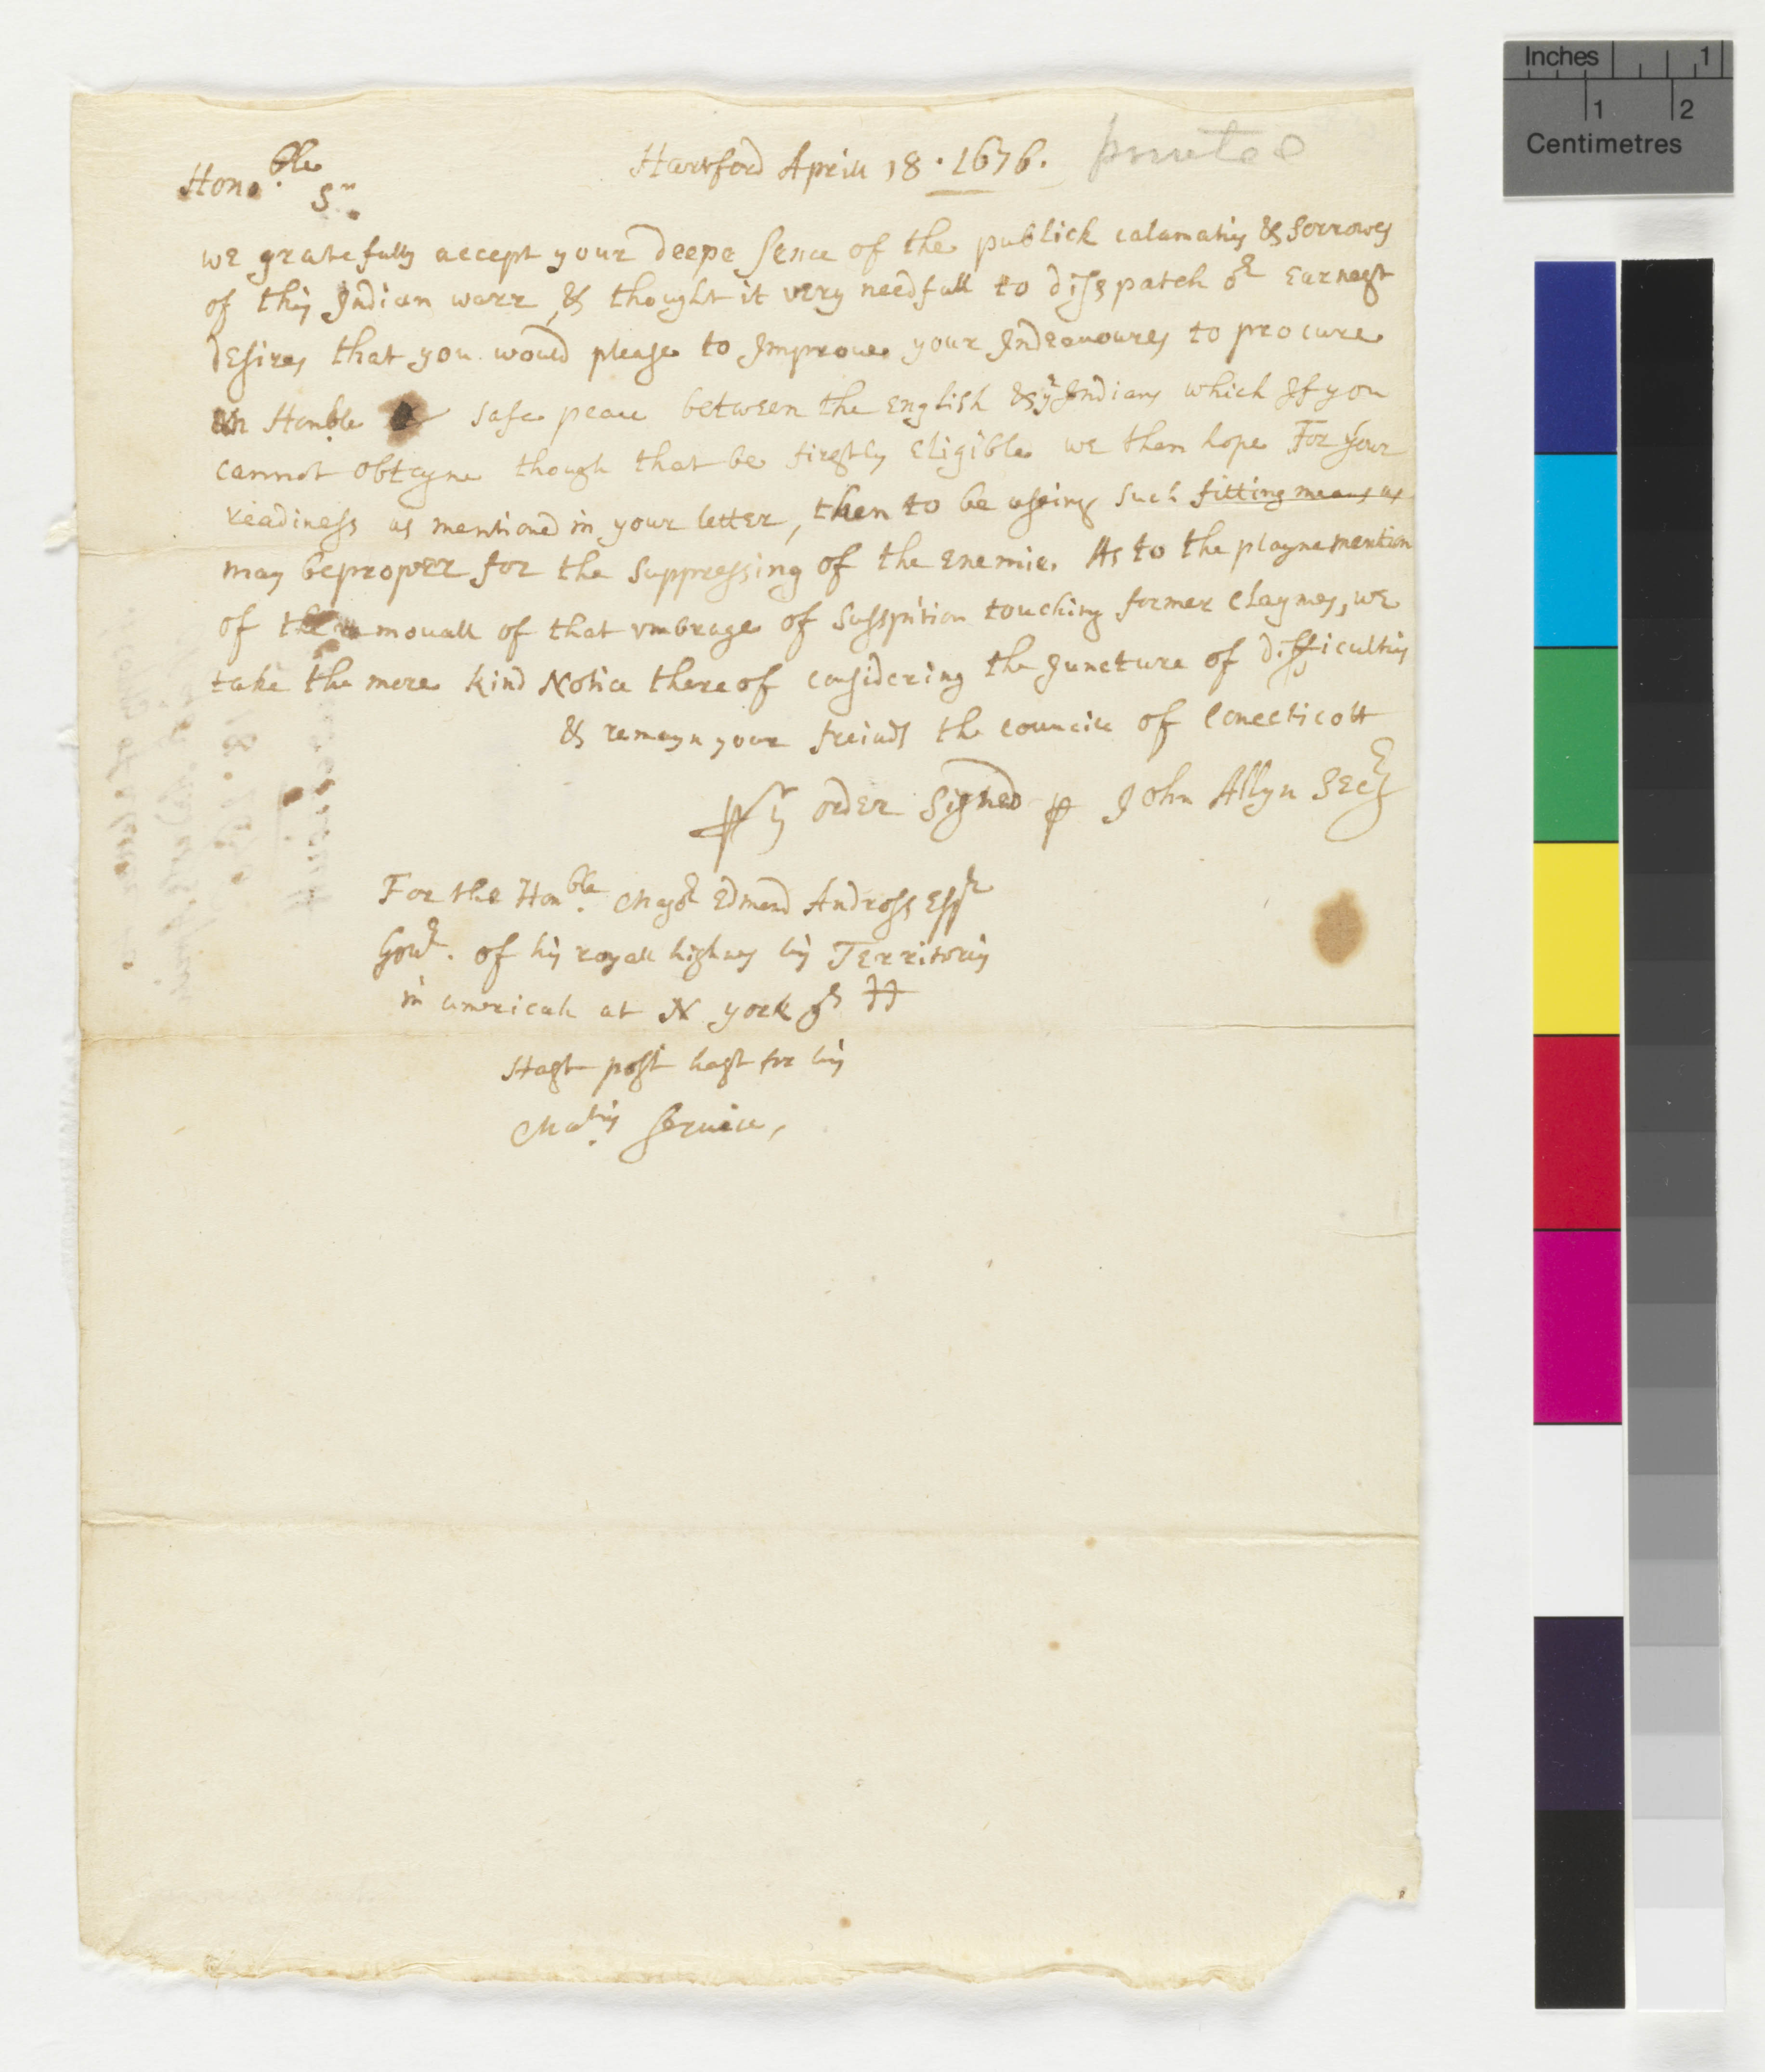 Hartford Aprill 18 · 1676. printed
Hono.ble Sr.
we gratefully accept your deepe sence of the publick calamaties & sorrowes
of this Indian warr, & thought it very needfull to disspatch or earnest
desires that you would please to Improue your Indeauoures to procure
an Honble & safe peace between the English & ye Indians which If you
cannot obteyne though that be firstly Eligible we then hope For your
readiness as mentioned in your letter, then to be useing such fitting means as
may be proper for the suppressing of the Enemie. As to the playne mention
of the remouall of that vmbrage of susspition touching former claymes, we
take the more kind Notice thereof considering the Juncture of difficulties
& remayn your freinds the councill of Conecticott
pr yr order signed p John Allyn Secry
For the Honble. Mayor Edmond Andross Essr
Gour. of his royall highnes his Territories
in americah at N york
Hast post hast for his
Maties. seruice,